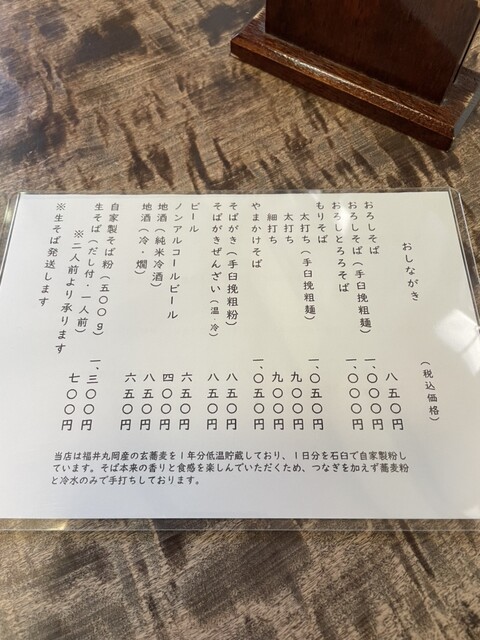 おしながき
（税込価格）
おろしそば 八五〇円
おろしそば（手臼挽粗麺） 一、〇〇〇円
おろしとろろそば 一、〇〇〇円
もりそば
太打ち（手臼挽粗麺） 一、〇五〇円
太打ち 九〇〇円
細打ち 九〇〇円
やまかけそば 一、〇五〇円
そばがき（手臼挽粗粉） 八五〇円
そばがきぜんざい（温・冷） 八五〇円
ビール 六五〇円
ノンアルコールビール 四〇〇円
地酒（純米冷酒） 八五〇円
地酒（冷・燗） 六五〇円
自家製そば粉（５００ｇ） 一、三〇〇円
生そば（だし付・一人前） 七〇〇円
※二人前より承ります
※生そば発送します
当店は福井丸岡産の玄蕎麦を１年分低温貯蔵しており、１日分を石臼で自家製粉し
ています。そば本来の香りと食感を楽しんでいただくため、つなぎを加えず蕎麦粉
と冷水のみで手打ちしております。